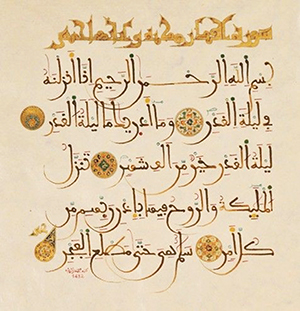 سورة القدر مكية
بسم الله الرحمن الرحيم إنا أنزلنه
في ليلة القدر وما أدريك ما ليلة القدر
ليلة القدر خير من ألف شهر تنزل
الملئكة والروح فيها بإذن ربهم من
كل أمر سلم هي حتى مطلع الفجر